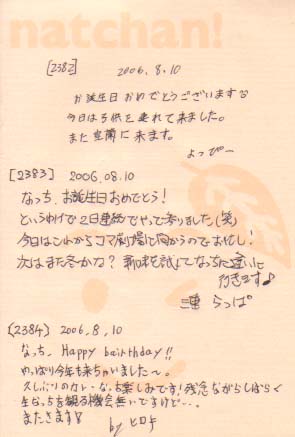 natchan!
[2382] 2006.8.10
お誕生日おめでとうございます♡
今日は子供を連れて来ました。
また室蘭に来ます。
よっぴー
[2383] 2006.08.10
なっち、お誕生日おめでとう!
というわけで2日連続でやって参りました(笑)
今日はこれからコマ劇場に向かうのでお忙し!
次はまた冬かな? 新曲を試よてなっちに逢いに
行きます♪
らっぱ
[2384] 2006.8.10
なっち、Happy beirthday!!
やっぱり今年も来ちゃいました〜。
久しぶりのカレーなっち楽しみです!残念ながらしばらく
生なっちを観る機会無いですけど…。
またきます♡
by ヒロキ